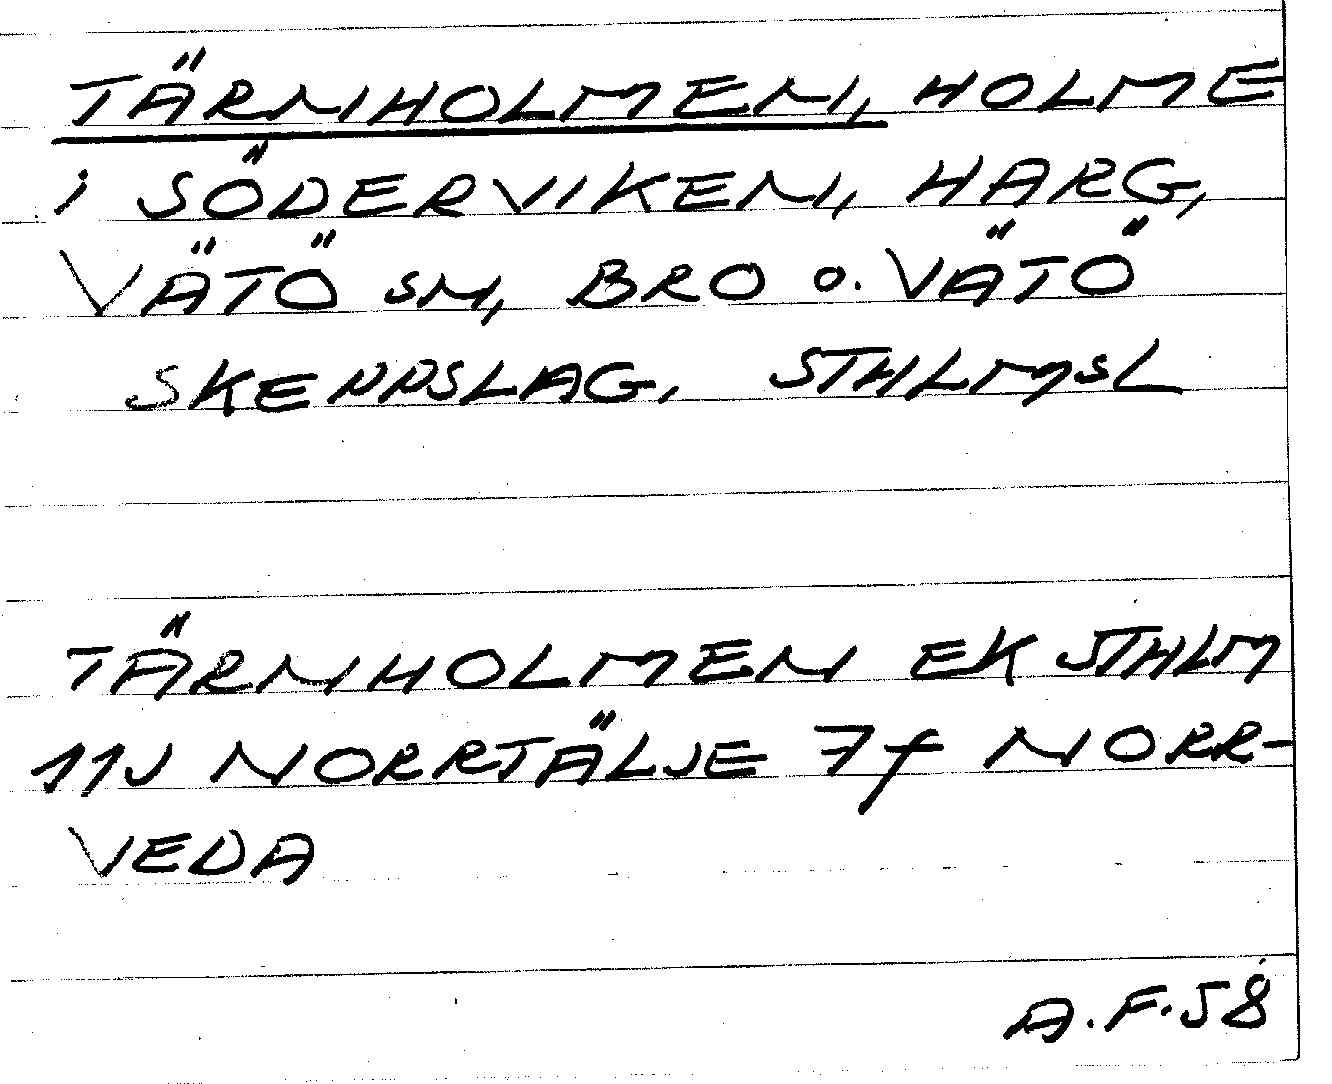 TÄRNHOLMEN, HOLME
i SÖDERVIKEN, HARG,
VÄTÖ sn, BRO o. VÄTÖ
SKEPPSLAG, STHLMSL
TÄRNHOLMEN EK STHLM
11J NORRTÄLJE 7f NORR-
VEDA
A.F.58